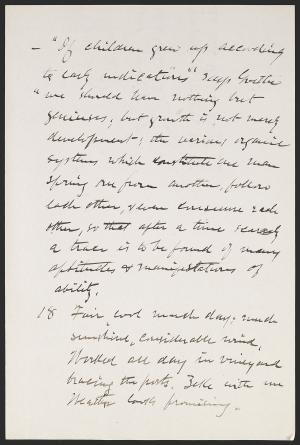 — "If children grew up according
to early indications" says Goethe
"we should have nothing but
geniuses; but growth is not merely
development; the various organic
systems which constitute one man
spring one from another, follow
each other, even consume each
other, so that after a time scarcely
a trace is to be found of many
aptitudes & manifestations of
ability.
18 Fair cool March day; much
sunshine, considerable wind.
Worked all day in vineyard
bracing the posts. Zeke with me
Weather looks promising.